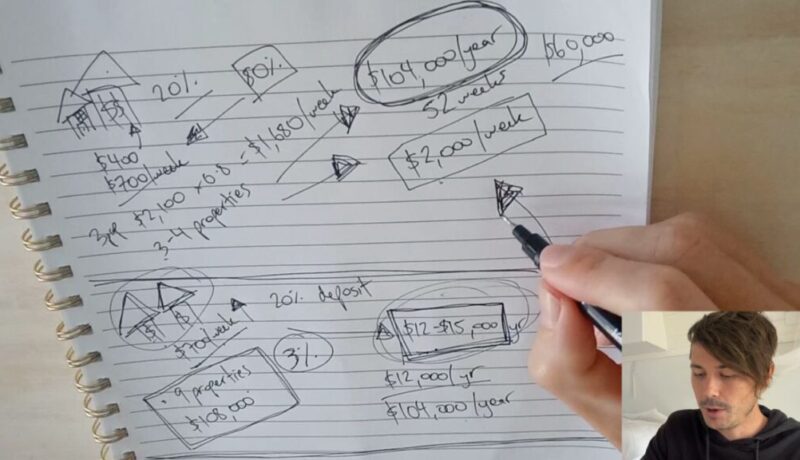 20%
80%
$104,000/year
$60,000
52 weeks
$2,000/week
$400
$700/week
$2,100 x 0.8 = $1,680/week
3-4 properties
20% deposit
$700/week
3%
$12-$15,000/yr
$12,000/yr
$104,000/year
• 9 properties
$108,000